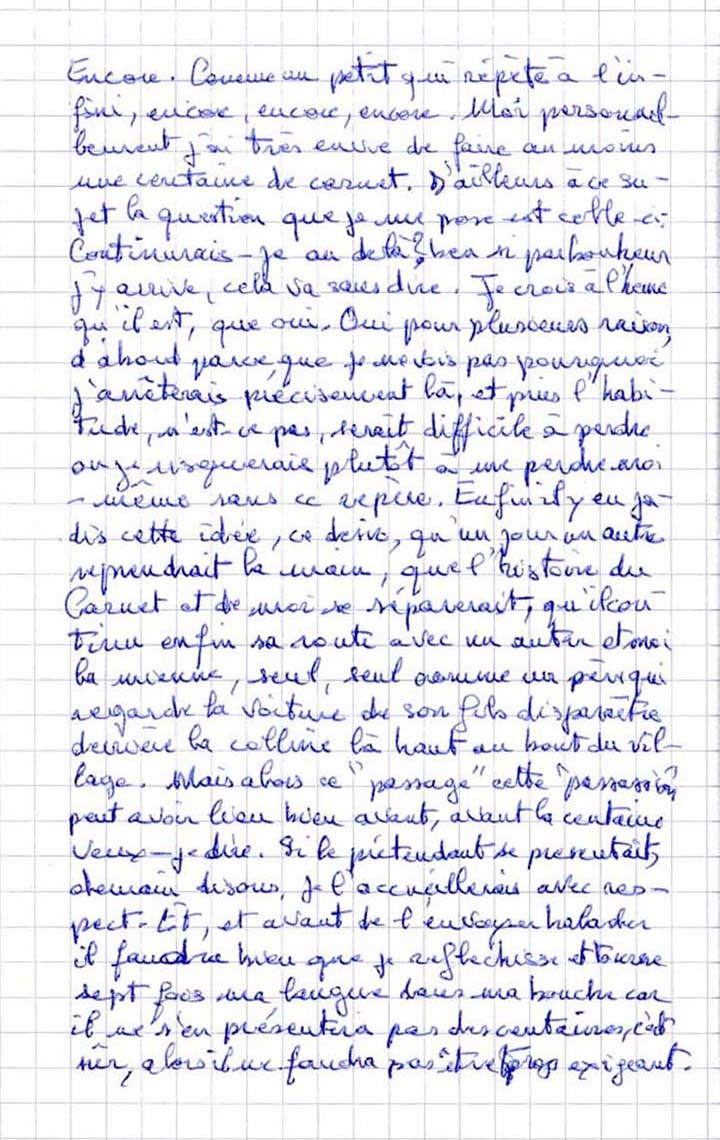 Encore. Comme un petit qui répète à l'in-
fini, encore, encore, encore. Moi personnel-
lement j'ai très envie de faire au moins
une centaine de carnet. D'ailleurs à ce su-
jet la question que je me pose est celle-ci:
Continurais-je au delà? ben si par bonheur
j'y arrive, cela va sans dire. Je crois à l'heure
qu'il est, que oui. Oui pour plusieurs raison,
d'abord parce que je ne vois pas pourquoi
j'arrêterais précisement là, et puis l'habi-
tude, n'est-ce pas, serait difficile à perdre
ou je risquerais plutôt à me perdre moi
-même sans ce repère. Enfin il y eu ja-
dis cette idée, ce désir, qu'un jour un autre
reprendrait la main, que l'histoire du
Carnet et de moi se séparerait, qu'il con
tinu enfin sa route avec un autre et moi
la mienne, seul, seul comme un père qui
regarde la voiture de son fils disparaître
derrière la colline là haut au bout du vil-
lage. Mais alors ce "passage" cette "passassion"
peut avoir lieu bien avant, avant la centaine
veux-je dire. Si le prétendant se presentait,
demain disons, je l'accueillerais avec res-
pect. Et, et avant de l'envoyer balader
il faudra bien que je reflechisse et tourne
sept fois ma langue dans ma bouche car
il ne s'en présentera pas des centaines, c'est
sûr, alors il ne faudra pas être trop exigeant.